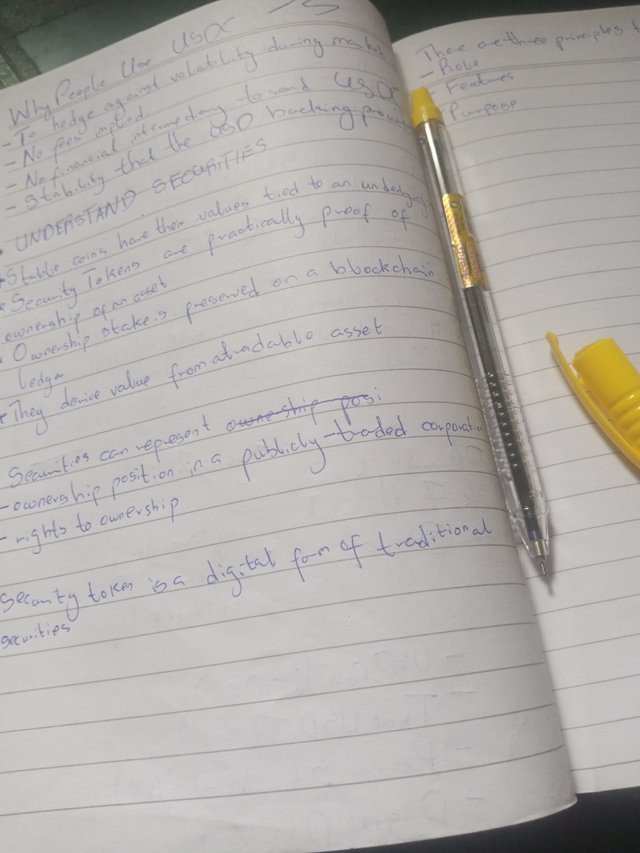 Why People Use USDC
- To hedge against volatility during market
- No fees implied
- No financial intermediary toward USDC
- Stability that the USD backing
• UNDERSTAND SECURITIES
• Stable coins have their values tied to an underlying
• Security Tokens are practically proof of
ownership of an asset
• Ownership stake is preserved on a blockchain
ledge
• They derive value from a tradable asset
Securities can represent ownership posi
- ownership position in a publicly-traded corporation
- rights to ownership
Security token is a digital form of traditional
securities
There are three principles
- Role
- Features
- Purpose